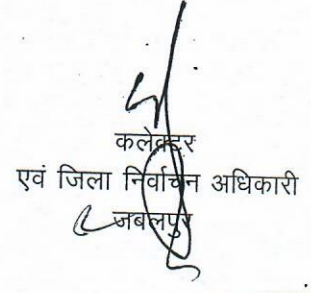 कलेक्टर
एवं जिला निर्वाचन अधिकारी
जबलपुर